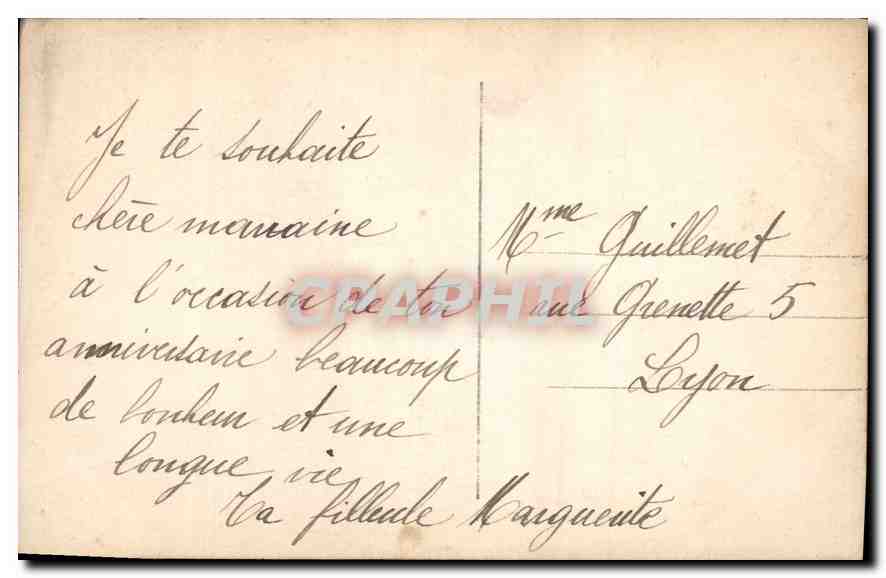 Je te souhaite
chère marraine
à l'occasion de ton
anniversaire beaucoup
de bonheur et une
longue vie
Ta filleule Marguerite
Mme Guillemet
rue Grenette 5
Lyon
CPAPHIL